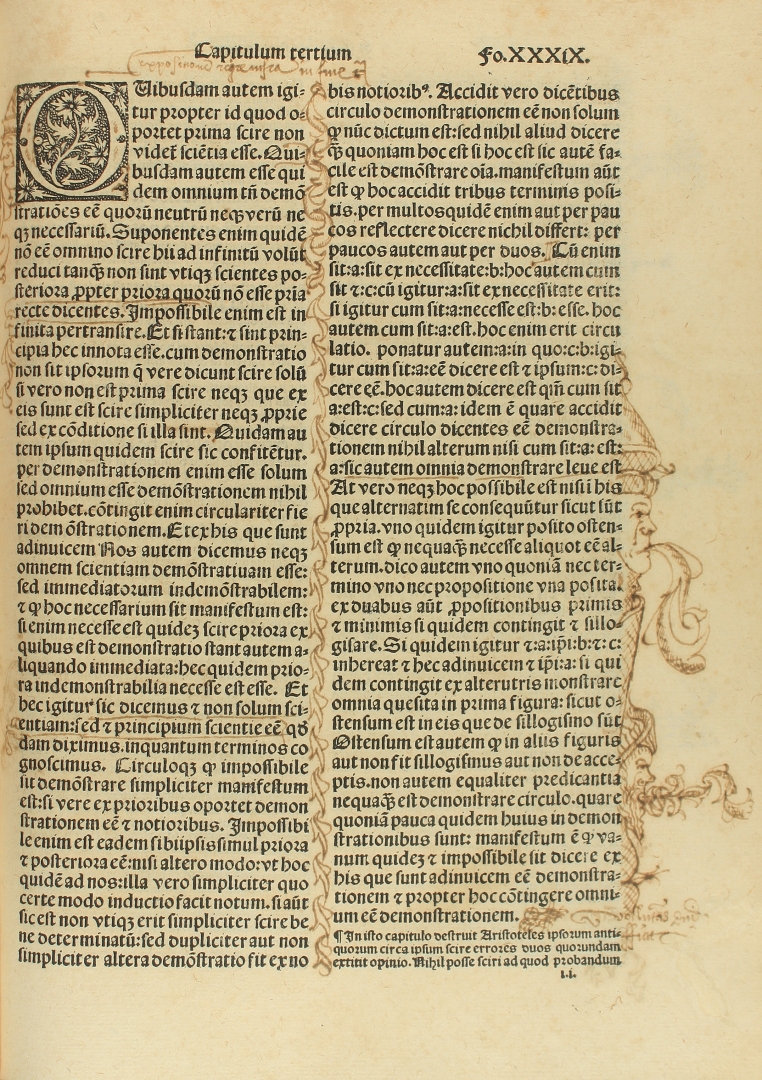 Capitulum tertium
Fo.XXXIX.
QUibusdam autem igi-
tur propter id quod o-
portet prima scire non
videt̄ sciētia esse. Qui-
busdam autem esse qui
dem omnium tn̄ demō
stratiōes eē quorū neutrū neqꝫ verū ne
qꝫ necessariū. Suponentes enim quidē
nō eē omnino scire hii ad infinitū volūt
reduci tanq̄ꝫ non sint vtiqꝫ scientes po-
steriora ꝓpter priora quorū nō esse pria
recte dicentes. Impossibile enim est in
finita pertransire. Et si stant: ⁊ sint prin-
cipia hec innota esse. cum demonstratio
non sit ipsorum q̄ vere dicunt scire solū
si vero non est prima scire neqꝫ que ex
eis sunt est scire simpliciter neqꝫ ꝓprie
sed ex cōditione si illa sint. Quidam au
tem ipsum quidem scire sic confitētur.
per demonstrationem enim esse solum
sed omnium esse demōstrationem nihil
prohibet. cōtingit enim circulariter fie
ri demōstrationem. Et ex his que sunt
adinuicem Nos autem dicemus neqꝫ
omnem scientiam demōstratiuam esse:
sed immediatorum indemōstrabilem:
⁊ ꝙ hoc necessarium sit manifestum est:
si enim necesse est quideꝫ scire priora ex
quibus est demonstratio stant autem a-
liquando immediata: hec quidem prio-
ra indemonstrabilia necesse est esse. Et
hec igitur sic dicemus ⁊ non solum sci-
entiam: sed ⁊ principium scientie eē qd̄
dam diximus. inquantum terminos co
gnoscimus. Circuloqꝫ ꝙ impossibile
sit demōstrare simpliciter manifestum
est: si vere ex prioribus oportet demon
strationem eē ⁊ notioribus. Impossibi
le enim est eadem sibiipsis simul priora
⁊ posteriora eē: nisi altero modo: vt hoc
quidē ad nos: illa vero simpliciter quo
certe modo inductio facit notum. si aūt
sic est non vtiqꝫ erit simpliciter scire be
ne determinatū: sed dupliciter aut non
simpliciter altera demōstratio fit ex no
bis notioribꝰ. Accidit vero dicētibus
circulo demonstrationem eē non solum
ꝙ nūc dictum est: sed nihil aliud dicere
q̄ꝫ quoniam hoc est si hoc est sic autē fa-
cile est demōstrare oīa. manifestum aūt
est ꝙ hoc accidit tribus terminis posi-
tis. per multos quidē enim aut per pau
cos reflectere dicere nichil differt: per
paucos autem aut per duos. Cū enim
sit: a: sit ex necessitate: b: hoc autem cum
sit ⁊: c: cū igitur: a: sit ex necessitate erit:
si igitur cum sit: a: necesse est: b: esse. hoc
autem cum sit: a: est. hoc enim erit circu
latio. ponatur autem: a: in quo: c: b: igi-
tur cum sit: a: eē dicere est ⁊ ipsum: c: di-
cere eē. hoc autem dicere est qm̄ cum sit
a: est: c: sed cum: a: idem ē quare accidit
dicere circulo dicentes eē demonstra-
tionem nihil alterum nisi cum sit: a: est:
a: sic autem omnia demonstrare leue est
At vero neqꝫ hoc possibile est nisi ī his
que alternatim se consequūtur sicut sūt
ꝓpria. vno quidem igitur posito osten-
sum est ꝙ nequaq̄ꝫ necesse aliquot eē al-
terum. dico autem vno quoniā nec ter-
mino vno nec propositione vna posita.
ex duabus aūt ꝓpositionibus primis
⁊ minimis si quidem contingit ⁊ sillo-
gisare. Si quidem igitur ⁊: a: ip̄i: b: ⁊: c:
inhereat ⁊ hec adinuicem ⁊ ip̄i: a: si qui
dem contingit ex alterutris monstrare
omnia quesita in prima figura: sicut o-
stensum est in eis que de sillogismo sūt
Ostensum est autem ꝙ in aliis figuris
aut non fit sillogismus aut non de acce-
ptis. non autem equaliter predicantia
nequaq̄ꝫ est demonstrare circulo. quare
quoniā pauca quidem huius in demon
strationibus sunt: manifestum ē ꝙ va-
num quideꝫ ⁊ impossibile sit dicere ex
his que sunt adinuicem eē demonstra-
tionem ⁊ propter hoc cōtingere omni-
um eē demonstrationem.
¶ In isto capitulo destruit Aristoteles ipsorum anti-
quorum circa ipsum scire errores duos quorundam
extitit opinio. Nihil posse sciri ad quod probandum
i.i.